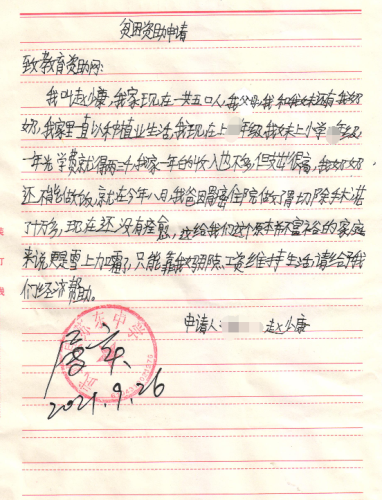 贫困资助申请
致教育资助网:
我叫赵少康,我家现在一共五口人,我父母,我和我妹还有我奶
奶,我家里一直以种植业生活,我现在上 年级,我妹上小学 年级,
一年光学费就得两三千,我家一年的收入也不多但支出很高,我奶奶
还不能做饭,就在今年八月,我爸因胃癌住院做了胃切除手术花
了十万多,现在还没有痊愈,这给我们这个原本都不富裕的家庭
来说更是雪上加霜,只能靠我妈那点工资维持生活,请给予我
们经济帮助。
申请人: 赵少康
东中学
属实
2021.9.26